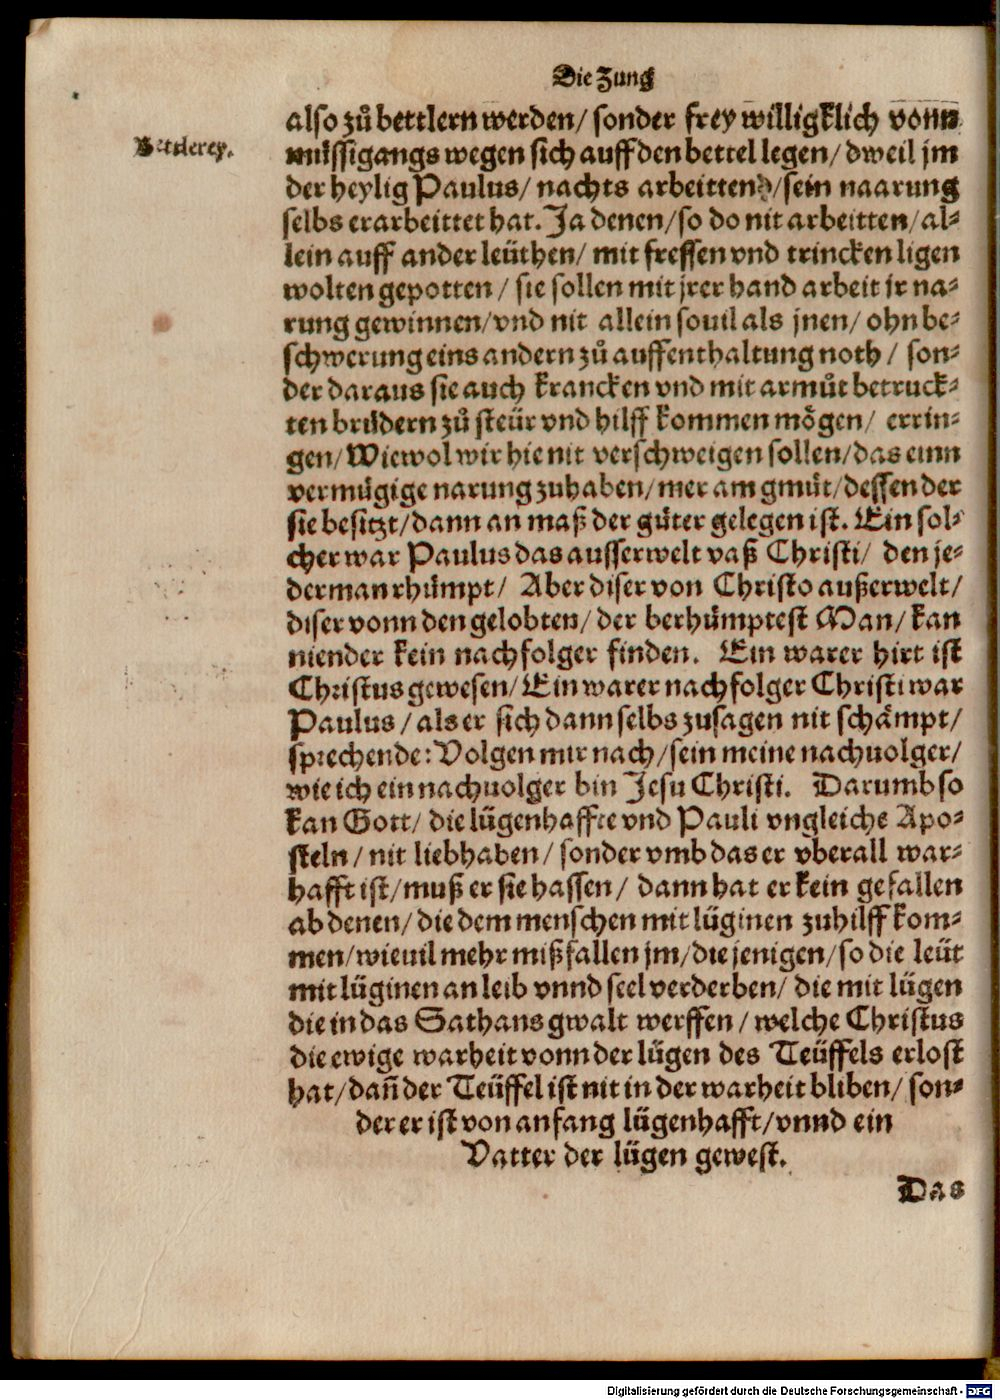 Die Zung
also zů bettlern werden/ sonder frey willigklich vonn
Bettlerey.
müssigangs wegen sich auff den bettel legen/ dweil jm
der heylig Paulus/ nachts arbeittend/ sein naarung
selbs erarbeittet hat. Ja denen/ so do nit arbeitten/ al⸗
lein auff ander leüthen/ mit fressen vnd trincken ligen
wolten gepotten/ sie sollen mit jrer hand arbeit jr na⸗
rung gewinnen/ vnd nit allein souil als jnen/ ohn be⸗
schwerung eins andern zů auffenthaltung noth/ son⸗
der daraus sie auch krancken vnd mit armůt betruck⸗
ten brüdern zů steür vnd hilff kommen mögen/ errin⸗
gen/ Wiewol wir hie nit verschweigen sollen/ das einn
vermügige narung zuhaben/ mer am gmüt/ dessen der
sie besitzt/ dann an maß der güter gelegen ist. Ein sol⸗
cher war Paulus das ausserwelt vaß Christi/ den je⸗
derman rhümpt/ Aber diser von Christo außerwelt/
diser vonn den gelobten/ der berhümptest Man/ kan
niender kein nachfolger finden. Ein warer hirt ist
Christus gewesen/ Ein warer nachfolger Christi war
Paulus/ als er sich dann selbs zusagen nit schämpt/
sprechende: Volgen mir nach/ sein meine nachuolger/
wie ich ein nachuolger bin Jesu Christi. Darumb so
kan Gott/ die lügenhaffte vnd Pauli vngleiche Apo⸗
steln/ nit liebhaben/ sonder vmb das er vberall war⸗
hafft ist/ muß er sie hassen/ dann hat er kein gefallen
ab denen/ die dem menschen mit lüginen zuhilff kom⸗
men/ wieuil mehr mißfallen jm/ die jenigen/ so die leüt
mit lüginen an leib vnnd seel verderben/ die mit lügen
die in das Sathans gwalt werffen/ welche Christus
die ewige warheit vonn der lügen des Teüffels erlost
hat/ dañ der Teüffel ist nit in der warheit bliben/ son⸗
der er ist von anfang lügenhafft/ vnnd ein
Vatter der lügen gewest.
Das
Digitalisierung gefördert durch die Deutsche Forschungsgemeinschaft - DFG